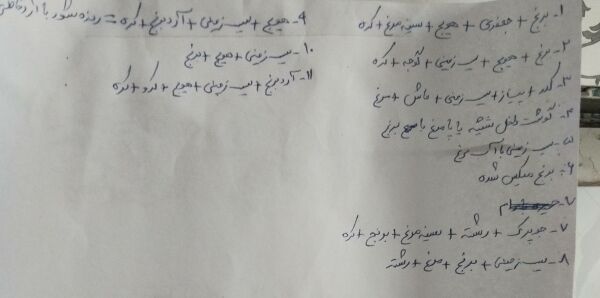 ۱- برنج + جعفری + هویج + سینه مرغ + کره
۲- مرغ + هویج + سیب زمینی + گوجه + کره
۳- کدو + پیاز + سیب زمینی + ماش + مرغ
۴- گوشت داخل شیشه یا پا مرغ با برنج
۵- سیب زمینی با آب مرغ
۶- برنج میکس شده
۷-
۷- جوپرک + رشته + سینه مرغ + برنج + کره
۸- سیب زمینی + برنج + مرغ + رشته
۹- هویج + سیب زمینی + آرد برنج + کره = رنده شود با آرد قاطی
۱۰- سیب زمینی + هویج + برنج
۱۱- آرد برنج + سیب زمینی + هویج + کدو + کره